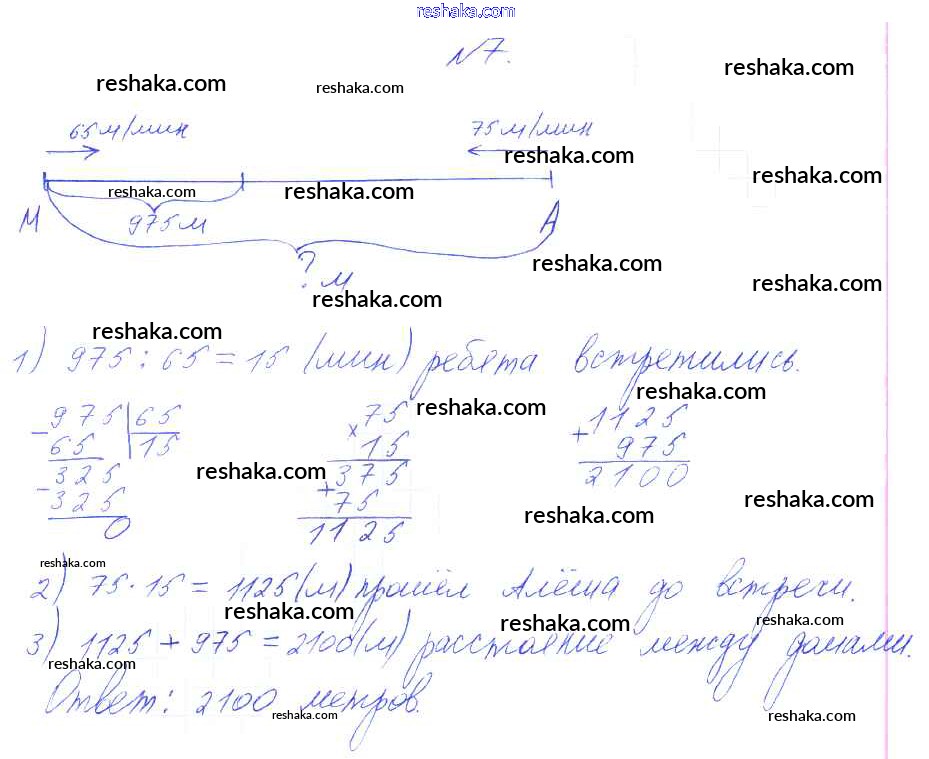 reshaka.com
№7.
reshaka.com reshaka.com reshaka.com
65м/мин 75м/мин
reshaka.com
reshaka.com reshaka.com reshaka.com
М 975м А
? м
reshaka.com
reshaka.com
reshaka.com
reshaka.com
1) 975 : 65 = 15 (мин) ребята встретились.
reshaka.com
reshaka.com
- 975 | 65
65 | 15
- 325
325
0
× 75
15
+ 375
75
1125
+ 1125
975
2100
reshaka.com
reshaka.com
reshaka.com
reshaka.com
2) 75 · 15 = 1125 (м) прошёл Алёша до встречи.
reshaka.com reshaka.com reshaka.com
3) 1125 + 975 = 2100 (м) расстояние между домами.
reshaka.com
Ответ: 2100 метров.
reshaka.com reshaka.com